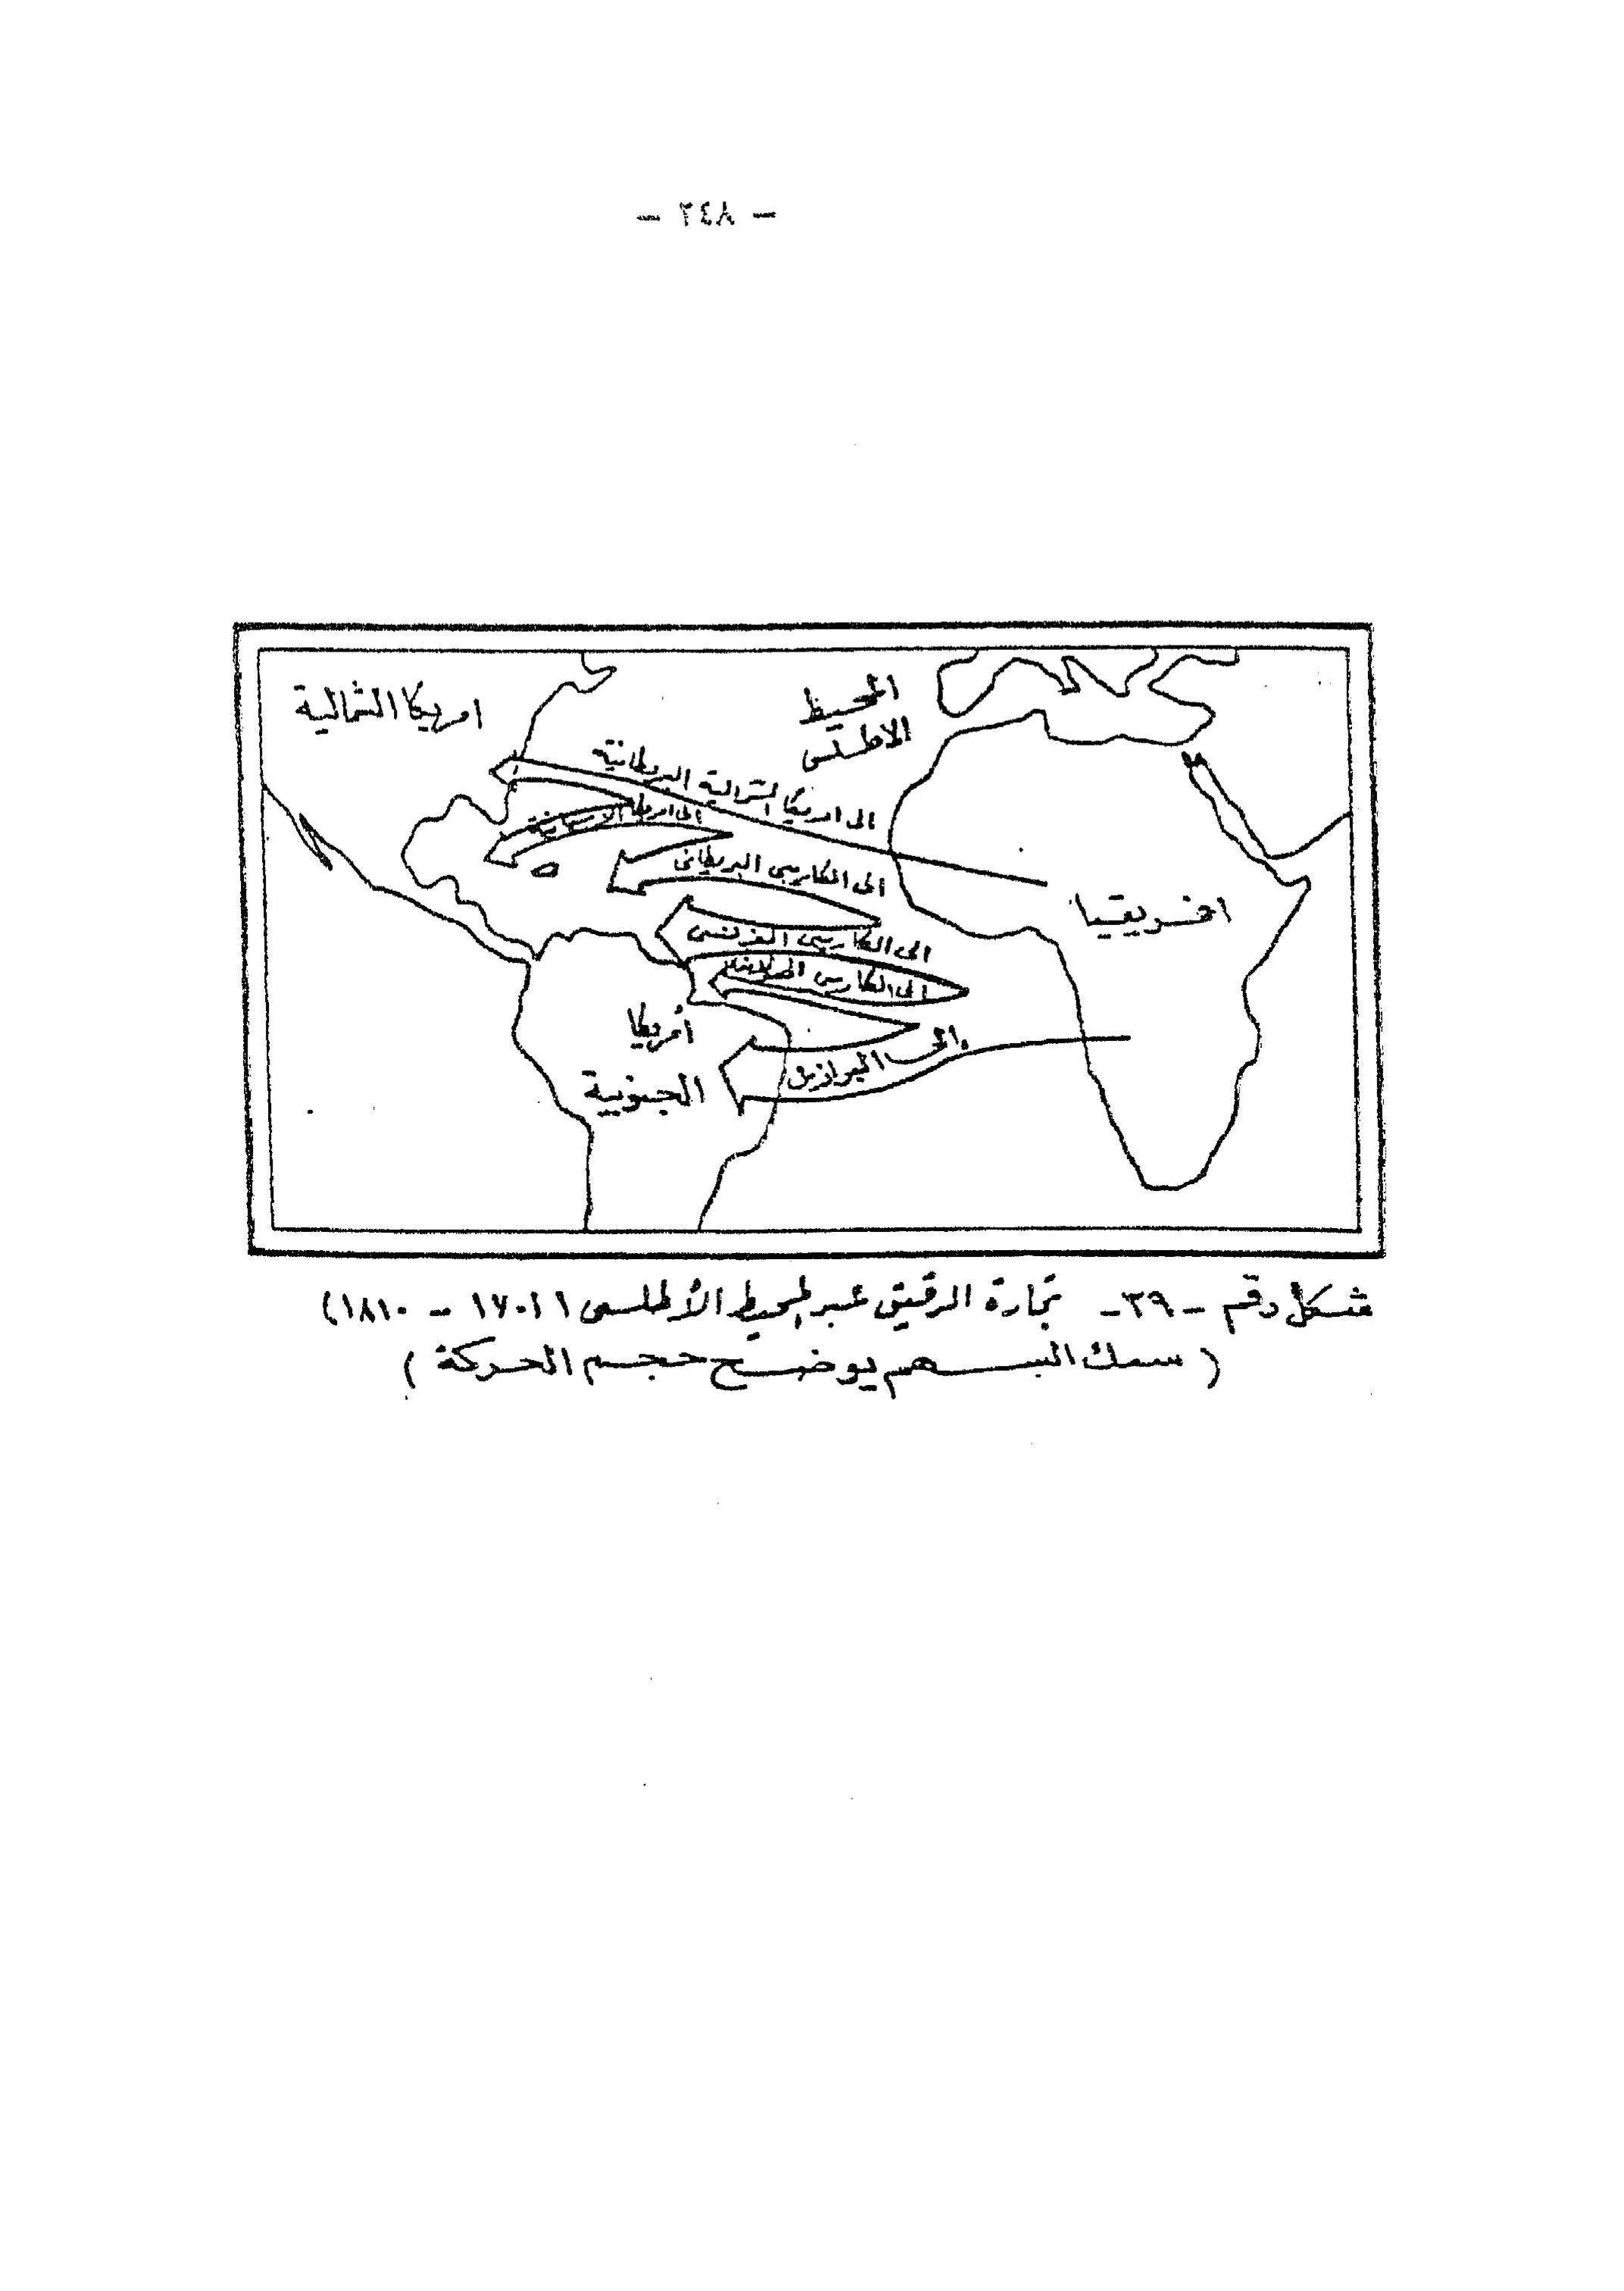 - ٢٤٨ -
امريكا الشمالية
المحيط
الاطلسى
الى امريكا الشمالية البريطانية
الى امريكا الاسبانية
الى الكاريبى البريطانى
افريقيا
الى الكاريبى الفرنسى
الى الكاريبى الهولاندى
أمريكا
الجنوبية
الى البرازيل
شكل رقم - ٣٩ - تجارة الرقيق عبر المحيط الأطلسى (١٧٠١ - ١٨١٠)
( سمك السهم يوضح حجم الحركة )